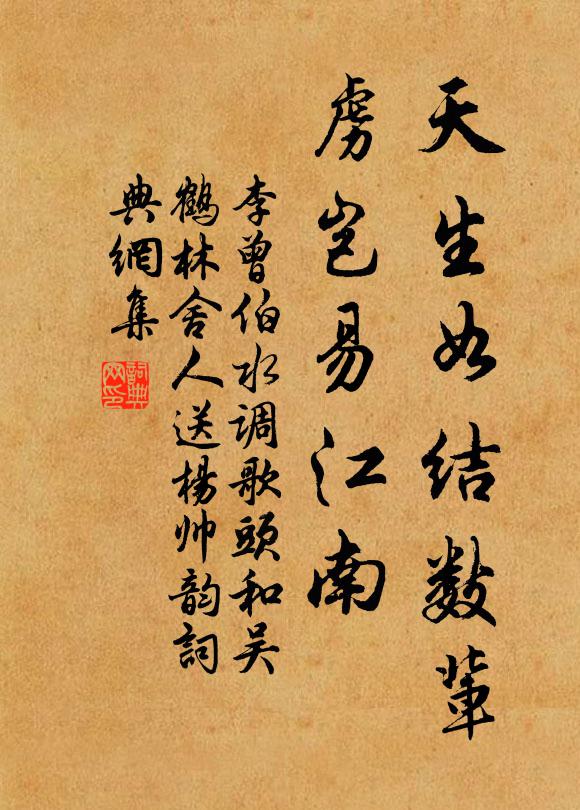 天生如结数辈
虏岂易江南
李曾伯水调歌頭和吴
鶴林舍人送楊帅韵詞
典網集
詞典
网印